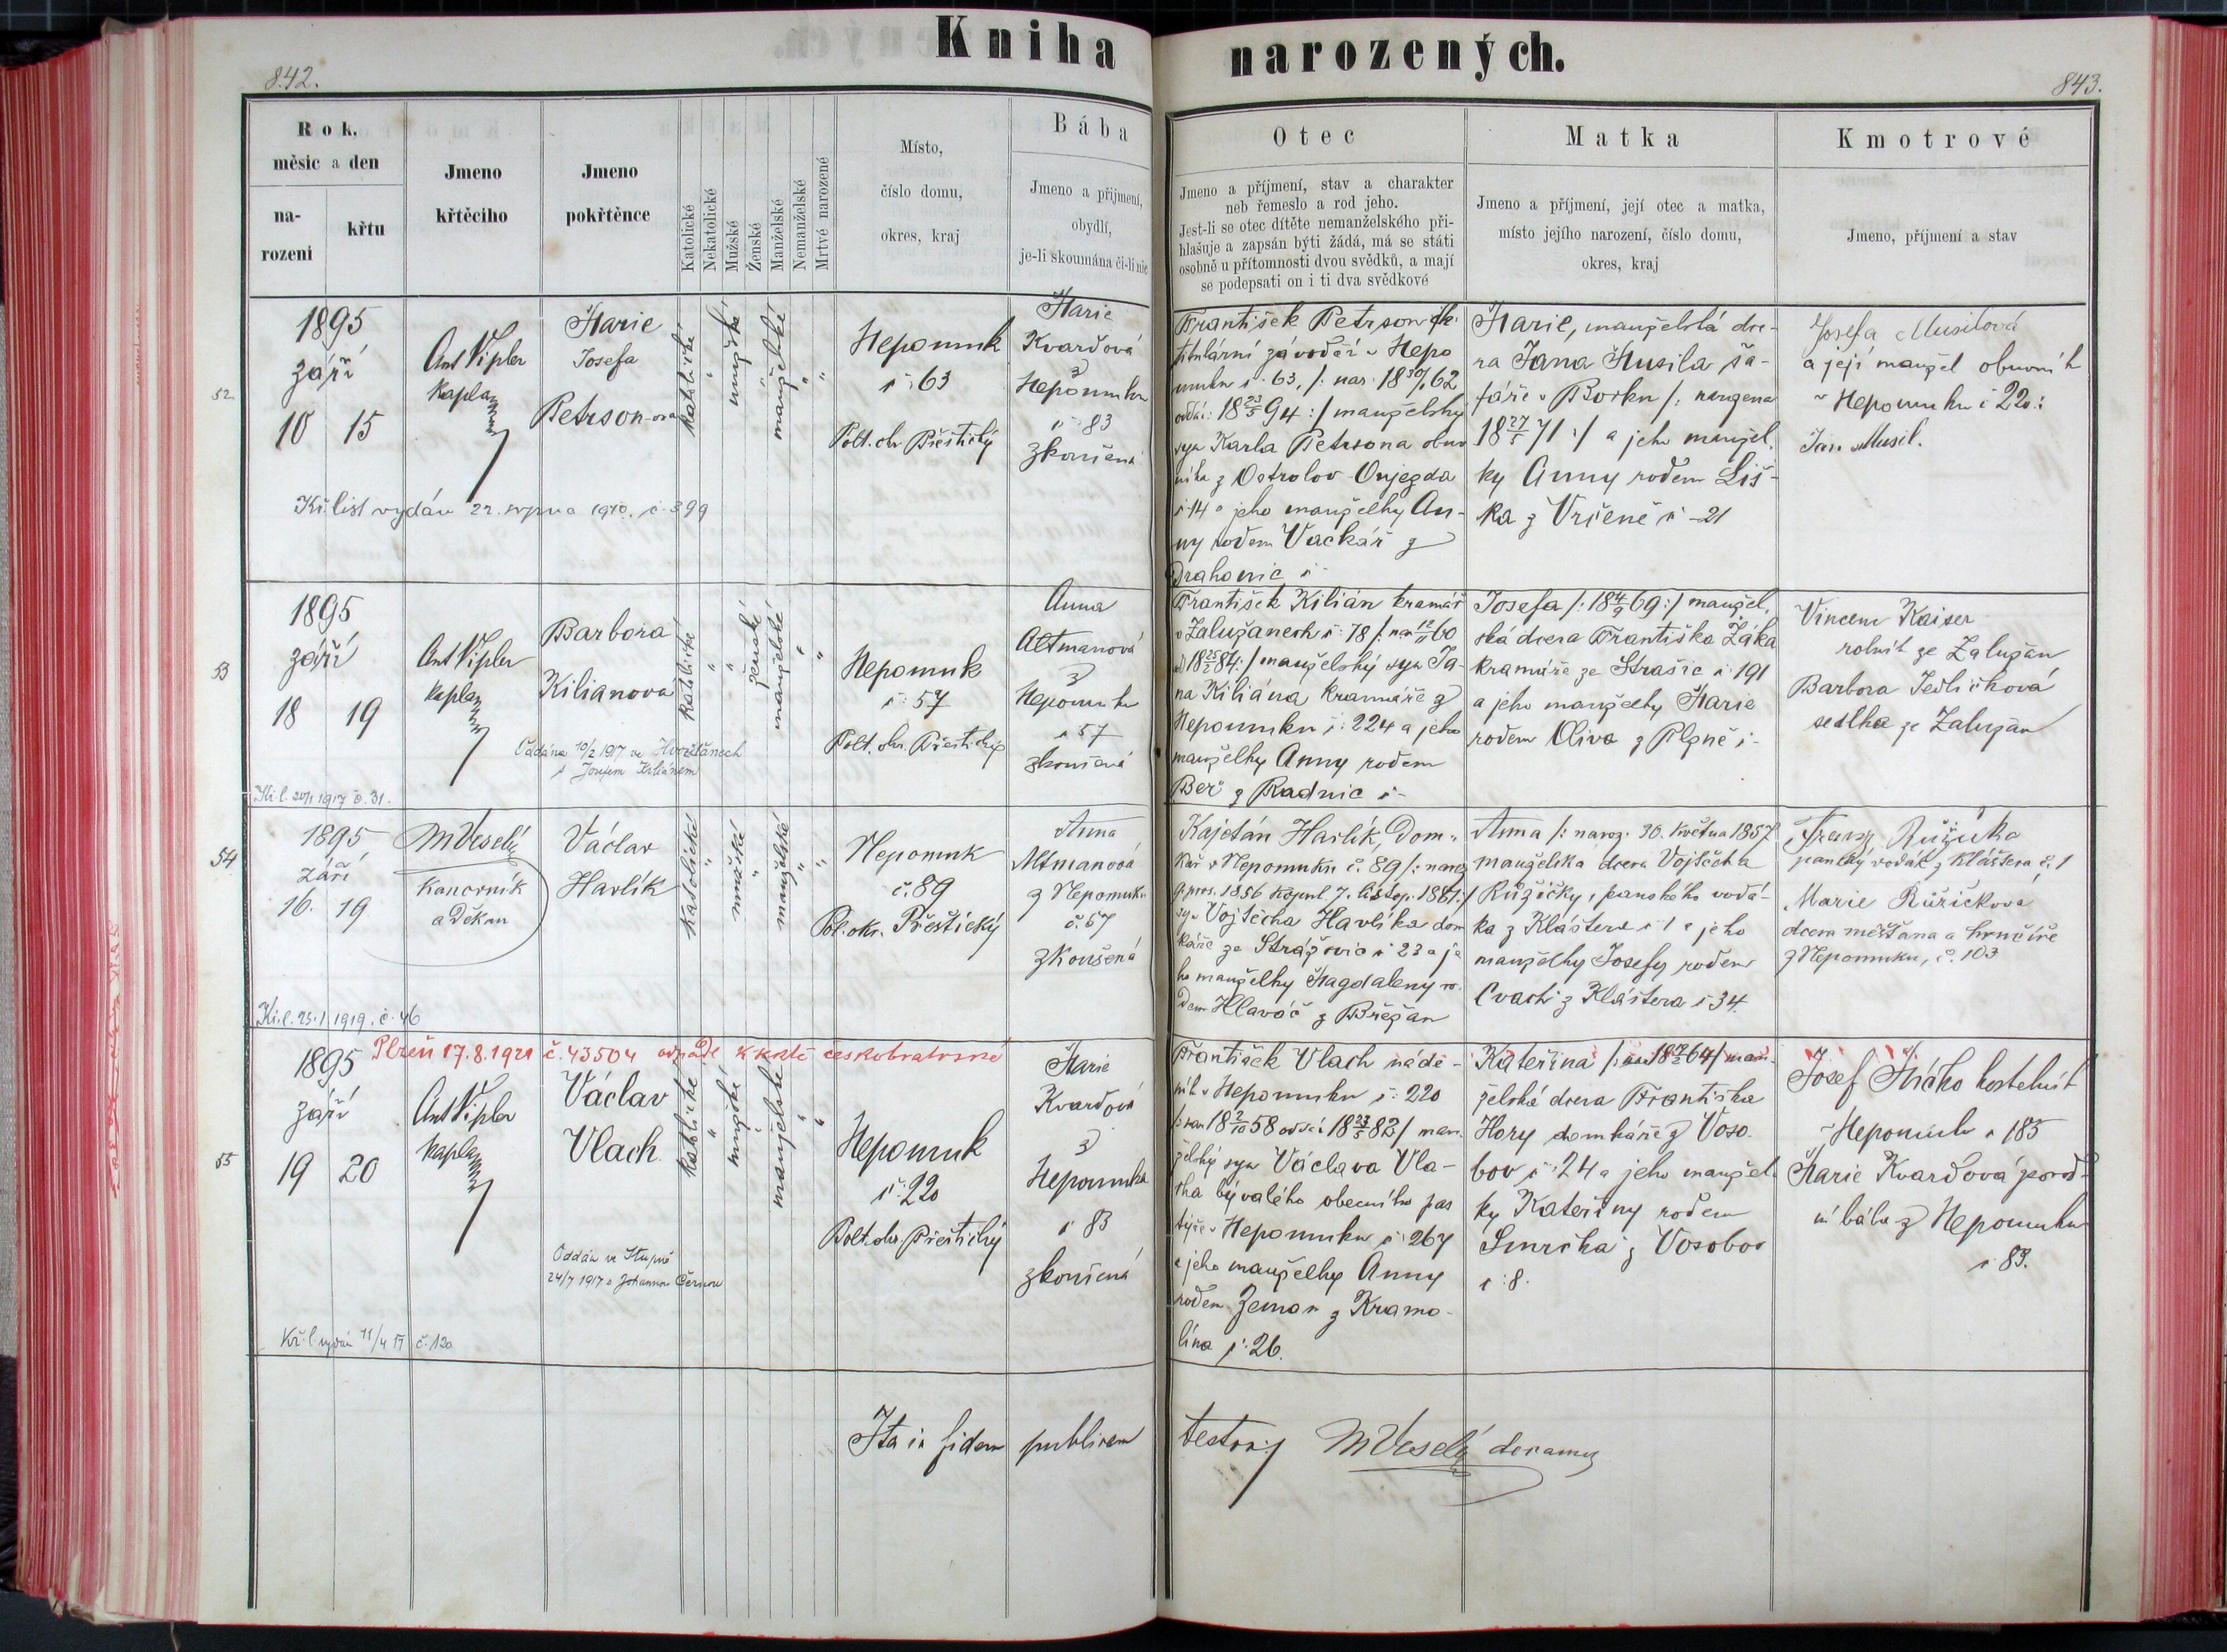 Kniha narozených.
842.
843.
Rok, měsíc a den
narození
křtu
Jmeno křtěcího
Jmeno pokřtěnce
Katolické
Nekatolické
Mužské
Ženské
Manželské
Nemanželské
Mrtvé narozené
Místo,
číslo domu,
okres, kraj
Bába
Jmeno a příjmení,
obydlí,
je-li skoumána či-li nic
Otec
Jmeno a příjmení, stav a charakter
neb řemeslo a rod jeho.
Jest-li se otec dítěte nemanželského při-
hlašuje a zapsán býti žádá, má se státi
osobně u přítomnosti dvou svědků, a mají
se podepsati on i ti dva svědkové
Matka
Jmeno a příjmení, její otec a matka,
místo jejího narození, číslo domu,
okres, kraj
Kmotrové
Jmeno, příjmení a stav
52
1895
září
10 15
Ant Vipler
kaplan
Marie
Josefa
Petrson-ova
katolické
manželské
Nepomuk
č: 63
Polt. okr Přeštický
Marie
Kvardová
z
Nepomuku
č 83
zkoušená
František Petrson
titulární závodčí v Nepo
muku č. 63, /: nar. 18 30/1 62
oddá: 18 23/5 94 :/ manželský
syn Karla Petrsona obuv
níka z Ostrolov Oujezda
č 14 a jeho manželky An-
ny rodem Vackář z
Drahonic č
Marie, manželská dce-
ra Jana Musila ša-
fáře v Borku /: narozena
18 27/5 71 :/ a jeho manžel
ky Anny rodem Liš-
ka z Vrčeně č 21
Josefa Musilová
a její manžel obuvník
v Nepomuku č 220:
Jan Musil.
Kř. list vydán 22. srpna 1910. č. 399
53
1895
září
18 19
Ant Vipler
kaplan
Barbora
Kilianová
katolické
ženské
manželské
Nepomuk
č: 57
Polt. okr. Přeštický
Anna
Altmanová
z
Nepomuku
č 57
zkoušená
František Kilián kramář
v Zalužanech č: 78 /: nar 12/11 60
od 18 25/2 84 :/ manželský syn Ja-
na Kiliána kramáře z
Nepomuku č: 224 a jeho
manželky Anny rodem
Beř z Radnic č-
Josefa /: 18 4/9 69 :/ manžel.
ská dcera Františka Žáka
kramáře ze Strašic č 191
a jeho manželky Marie
rodem Oliva z Plzně č-
Vincenc Kaiser
rolník ze Zalužan
Barbora Jedličková
sedlka ze Zalužan
Oddána 10/2 1917 ve Hvožďanech
s Josefem Kiliánem
Kř. l. 20/1 1917 č. 31.
54
1895
září
16. 19
M Veselý
Kanovník
a Děkan
Václav
Havlík
katolické
mužské
manželské
Nepomuk
č. 89
Pol. okr. Přeštický
Anna
Altmanová
z Nepomuku
č. 57
zkoušená
Kajetán Havlík, Dom-
kář v Nepomuku č. 89 /: naroz
9 pros. 1856 kopul. 7. listop. 1881 :/
syn Vojtěcha Havlíka dom
káře ze Strážovic č 23 a je
ho manželky Magdaleny ro-
dem Hlaváč z Břežan
Anna /: naroz. 30. května 1857
manželská dcera Vojtěcha
Růžičky, panského vodá-
ka z Kláštera č 1 a jeho
manželky Josefy rodem
Cvach z Kláštera č 34.
Franz Růžička
panský vodák z Kláštera č. 1
Marie Růžičkova
dcera měšťana a hrnčíře
z Nepomuku, č. 103
Kř. l. 25.1. 1919. č. 46
55
Plzeň 17.8.1921 č. 43504 odpadl k církvi českobratrské
1895
září
19 20
Ant Vipler
kaplan
Václav
Vlach
katolické
mužské
manželské
Nepomuk
č: 220
Polt. okr. Přeštický
Marie
Kvardová
z
Nepomuka
č 83
zkoušená
František Vlach nádе-
ník v Nepomuku č: 220
/: nar 18 2/10 58 oddá 18 23/5 82 / man.
želský syn Václava Vla-
cha bývalého obecního pas
týře v Nepomuku č: 267
a jeho manželky Anny
rodem Zeman z Kramo-
lína č: 26.
Kateřina man-
želská dcera Františka
Hory domkáře z Voso-
bov č: 24 a jeho manžel
ky Kateřiny rodem
Smrčka z Vosobov
č: 8.
Josef Mičko kostelník
v Nepomuku č 185
Marie Kvardová porod-
ní bába z Nepomuku
č 83.
Oddán ve Stupně
24/7 1917 s Johannou Černou
Kř. l. vydán 11/4 17 č. 120
Ita in fidem publicam testor.
M Veselý decanus